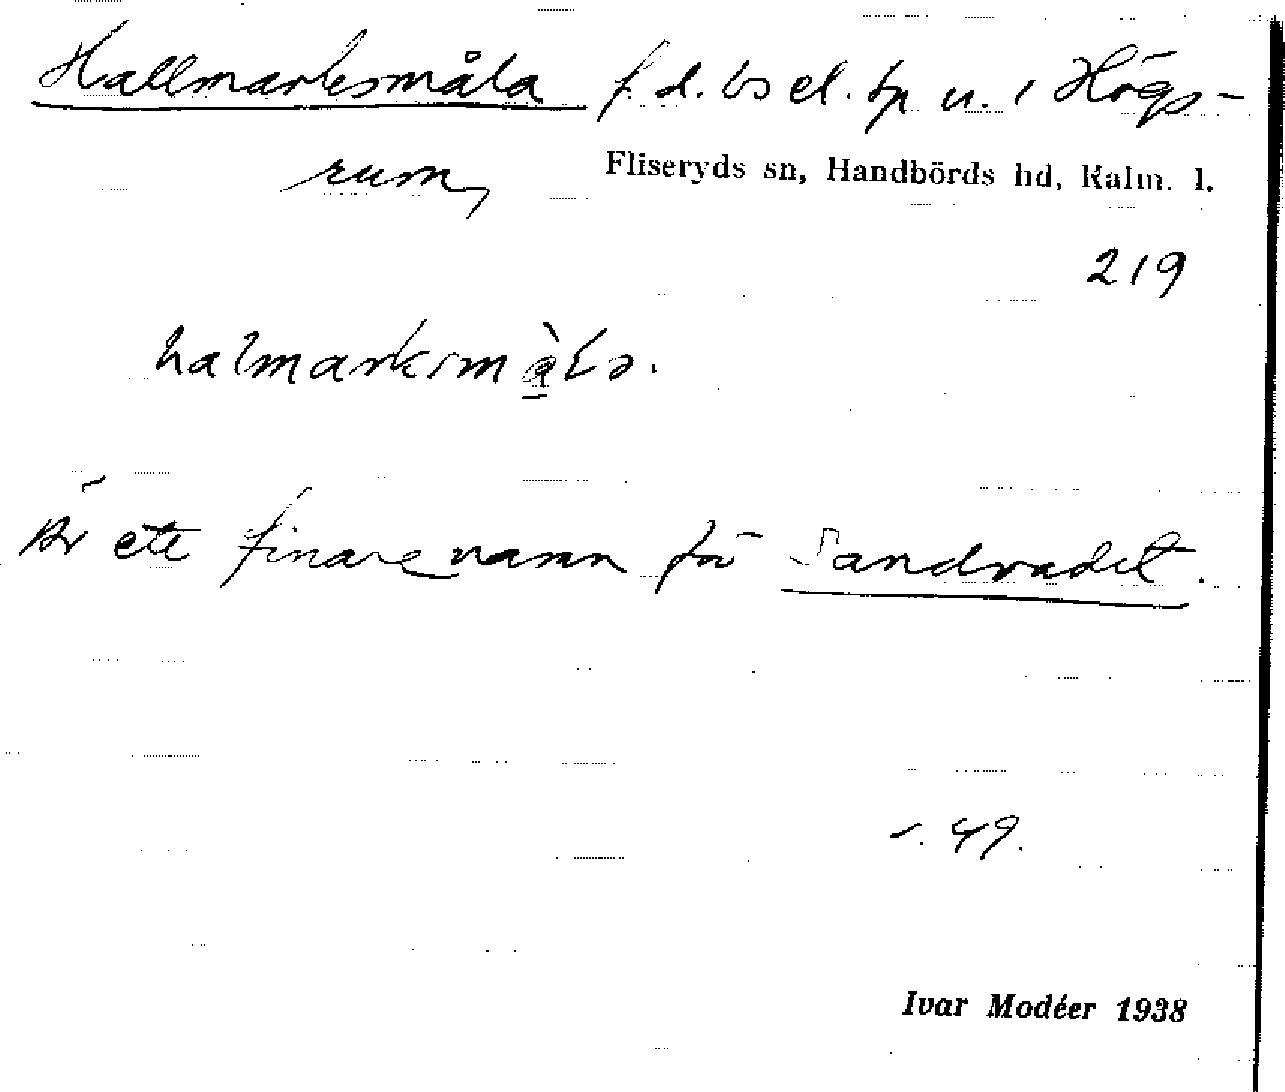 Hallmarksmåla f.d. bs el. tp u. i Högs-
rum,
Fliseryds sn, Handbörds hd, Kalm. l.
219
halmarksmå̀la.
Är ett finare namn för Sandvadet.
s. 49.
Ivar Modéer 1938